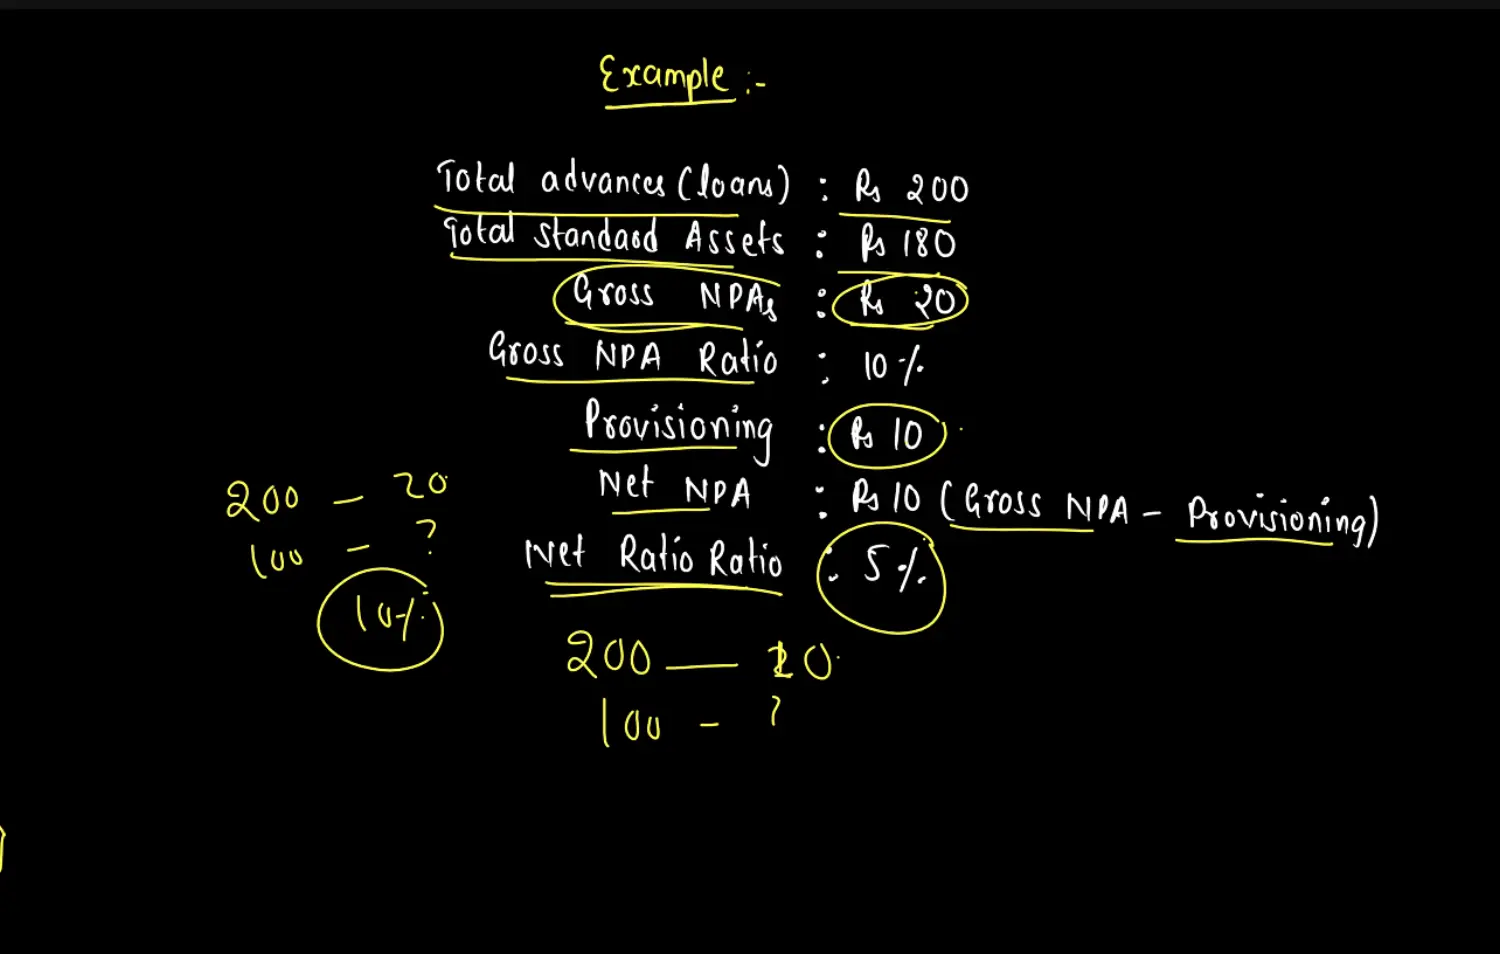 Example :-
Total advances (loans) : Rs 200
Total Standard Assets : Rs 180
Gross NPAs : Rs 20
Gross NPA Ratio : 10%
Provisioning : Rs 10
Net NPA : Rs 10 (Gross NPA - Provisioning)
Net Ratio Ratio : 5%
200 - 20
100 - ?
10%
200 — 10
100 - ?